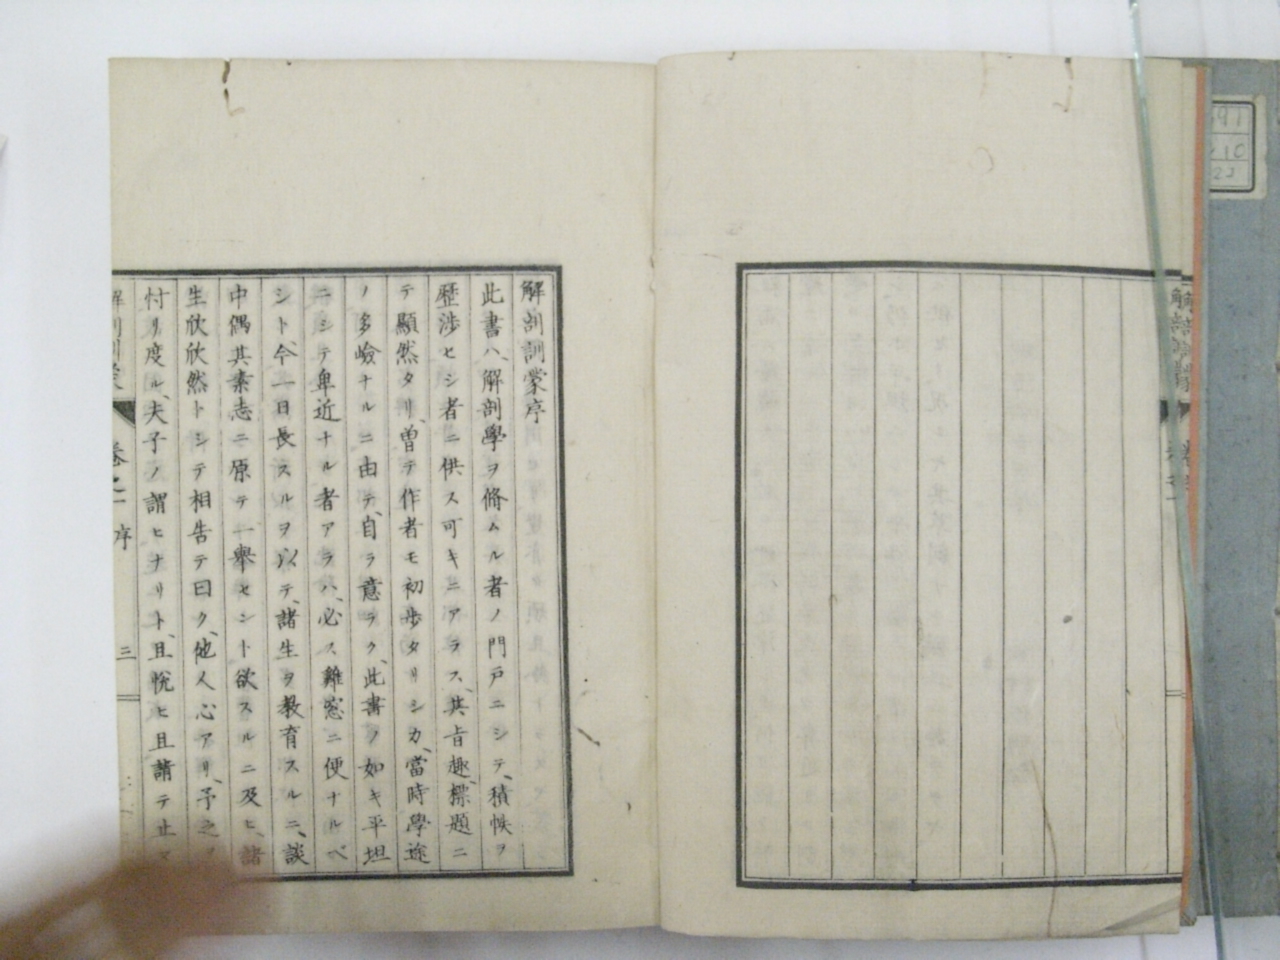 解剖訓蒙序
此書ハ、解剖學ヲ脩ムル者ノ門戸ニシテ、積帙ヲ
歴渉セシ者ニ供ス可キニアラス、其旨趣、標題ニ
テ顯然タリ、曽テ作者モ初歩タリシカ、當時學途
ノ多嶮ナルニ由テ、自ラ意ラク、此書ノ如キ平坦
ニシテ卑近ナル者アラハ、必ス雞窓ニ便ナルベ
シト、今一日長スルヲ以テ、諸生ヲ教育スルニ、談
中偶其素志ニ原テ一舉セント欲スルニ及ヒ、諸
生欣欣然トシテ相告テ曰ク、他人心アリ、予之ヲ
忖リ度ル、夫子ノ謂ヒナリト、且悅ヒ且請テ止マ
解剖訓蒙 卷之一 序 三